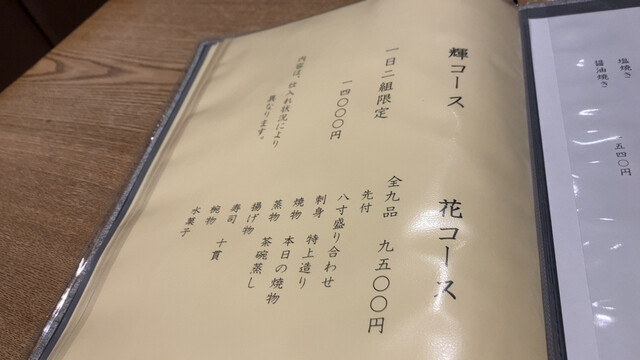 塩焼き
醤油焼き
一五四〇円
輝コース
一日二組限定
一四〇〇〇円
内容は、仕入れ状況により
異なります。
花コース
全九品 九五〇〇円
先付
八寸盛り合わせ
刺身 特上造り
焼物 本日の焼物
蒸物 茶碗蒸し
揚げ物
寿司 十貫
椀物
水菓子